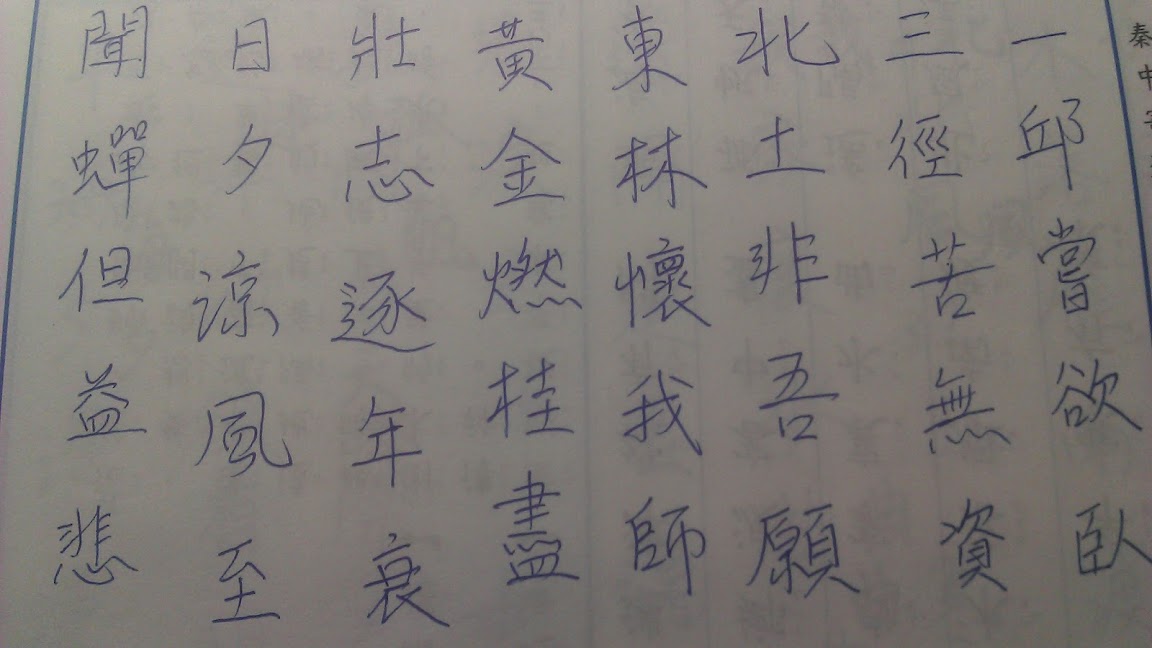 秦中
一邱嘗欲臥
三徑苦無資
北土非吾願
東林懷我師
黃金燃桂盡
壯志逐年衰
日夕諒風至
聞蟬但益悲